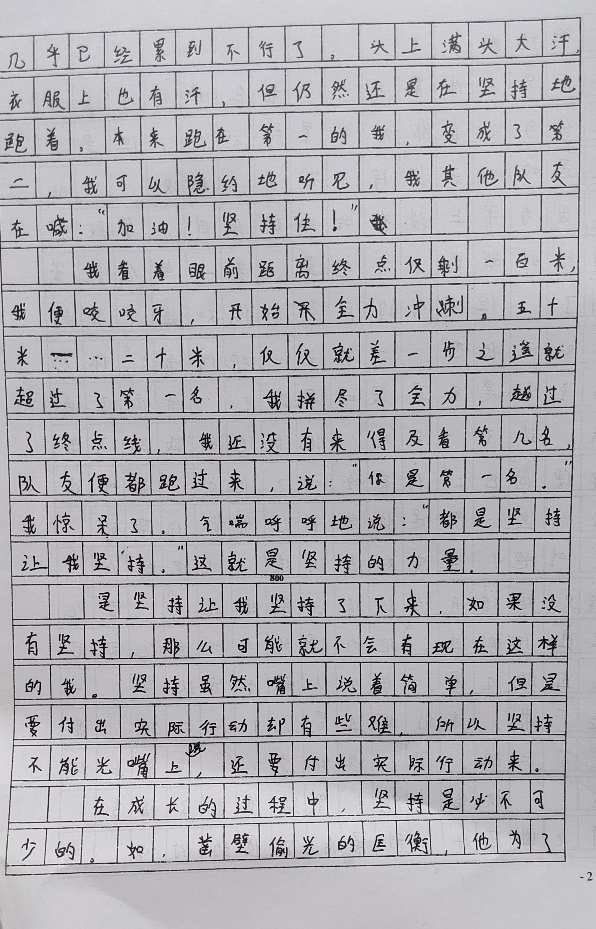 几乎已经累到不行了。头上满头大汗,
衣服上也有汗,但仍然还是在坚持地
跑着,本来跑在第一的我,变成了第
二,我可以隐约地听见,我其他队友
在喊:“加油!坚持住!”
我看着眼前距离终点仅剩一百米,
我便咬咬牙,开始采全力冲刺。五十
米……二十米,仅仅就差一步之遥就
超过了第一名,我拼尽了全力,越过
了终点线,我还没有来得及看第几名,
队友便都跑过来,说:“你是第一名。”
我惊呆了。气喘呼呼地说:“都是坚持
让我坚持。”这就是坚持的力量。
800
是坚持让我坚持了下来,如果没
有坚持,那么可能就不会有现在这样
的我。坚持虽然嘴上说着简单,但是
要付出实际行动却有些难,所以坚持
不能光嘴上说,还要付出实际行动来。
在成长的过程中,坚持是必不可
少的。如,凿壁偷光的匡衡,他为了
-2